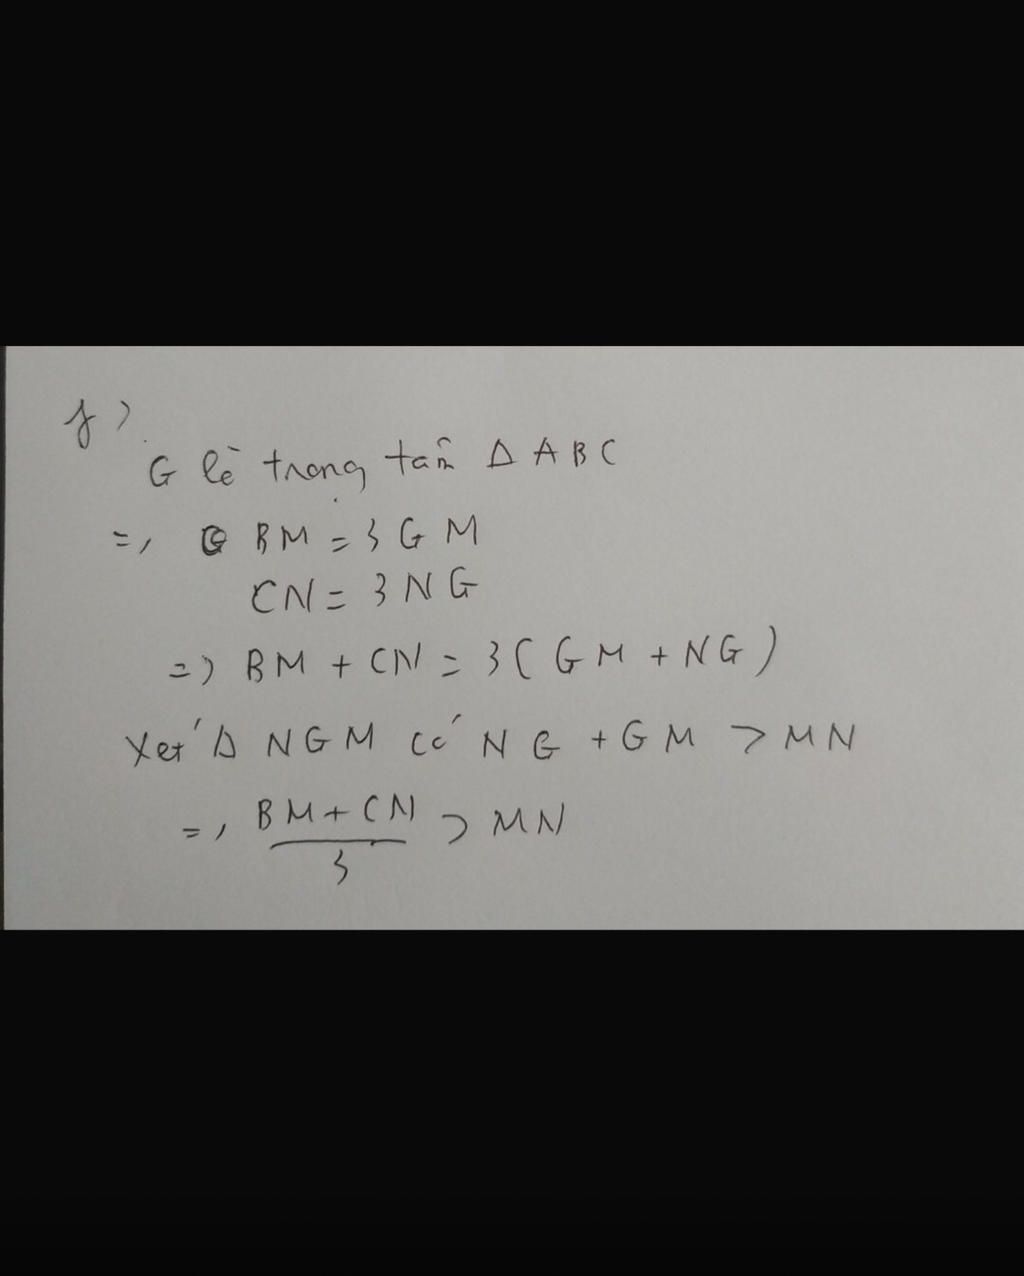 f)
G là trọng tâm Δ ABC
=> BM = 3 GM
CN = 3 NG
=> BM + CN = 3 ( GM + NG )
Xét Δ NGM có NG + GM > MN
=> BM + CN / 3 > MN